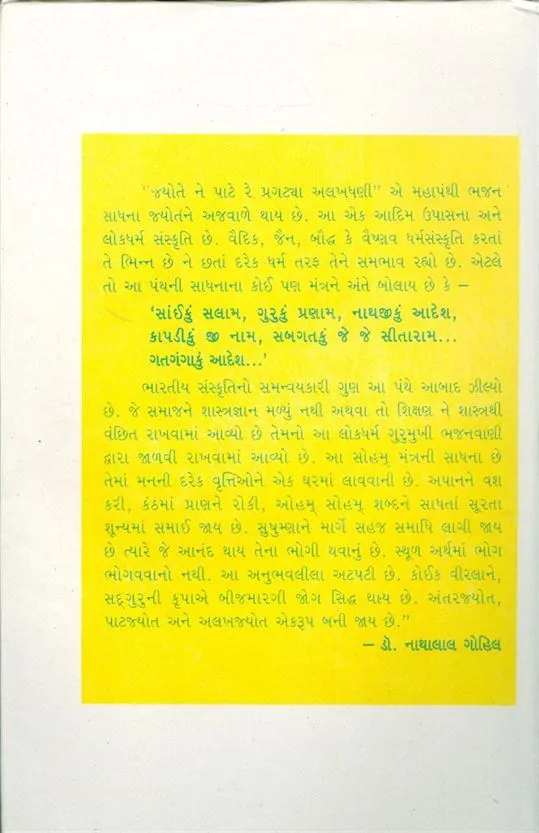 "જ્યોતે ને પાટે રે પ્રગટ્યા અલખધણી" એ મહાપંથી ભજન
સાધના જ્યોતને અજવાળે થાય છે. આ એક આદિમ ઉપાસના અને
લોકધર્મ સંસ્કૃતિ છે. વૈદિક, જૈન, બૌદ્ધ કે વૈષ્ણવ ધર્મસંસ્કૃતિ કરતાં
તે ભિન્ન છે ને છતાં દરેક ધર્મ તરફ તેને સમભાવ રહ્યો છે. એટલે
તો આ પંથની સાધનાના કોઈ પણ મંત્રને અંતે બોલાય છે કે –
'સાંઈકું સલામ, ગુરુકું પ્રણામ, નાથજીકું આદેશ,
કાપડીકું જી નામ, સબગતકું જે જે સીતારામ...
ગતગંગાકું આદેશ...'
ભારતીય સંસ્કૃતિનો સમન્વયકારી ગુણ આ પંથે આબાદ ઝીલ્યો
છે. જે સમાજને શાસ્ત્રજ્ઞાન મળ્યું નથી અથવા તો શિક્ષણ ને શાસ્ત્રથી
વંછિત રાખવામાં આવ્યો છે તેમનો આ લોકધર્મ ગુરુમુખી ભજનવાણી
દ્વારા જાળવી રાખવામાં આવ્યો છે. આ સોહમ્ મંત્રની સાધના છે
તેમાં મનની દરેક વૃત્તિઓને એક ઘરમાં લાવવાની છે. અપાનને વશ
કરી, કંઠમાં પ્રાણને રોકી, ઓહમ્ સોહમ્ શબ્દને સાધતાં સૂરતા
શૂન્યમાં સમાઈ જાય છે. સુષુમ્ણાને માર્ગે સહજ સમાધિ લાગી જાય
છે ત્યારે જે આનંદ થાય તેના ભોગી થવાનું છે. સ્થૂળ અર્થમાં ભોગ
ભોગવવાનો નથી. આ અનુભવલીલા અટપટી છે. કોઈક વીરલાને,
સદ્ગુરુની કૃપાએ બીજમારગી જોગ સિદ્ધ થાય છે. અંતરજ્યોત,
પાટજ્યોત અને અલખજ્યોત એકરૂપ બની જાય છે."
– ડૉ. નાથાલાલ ગોહિલ